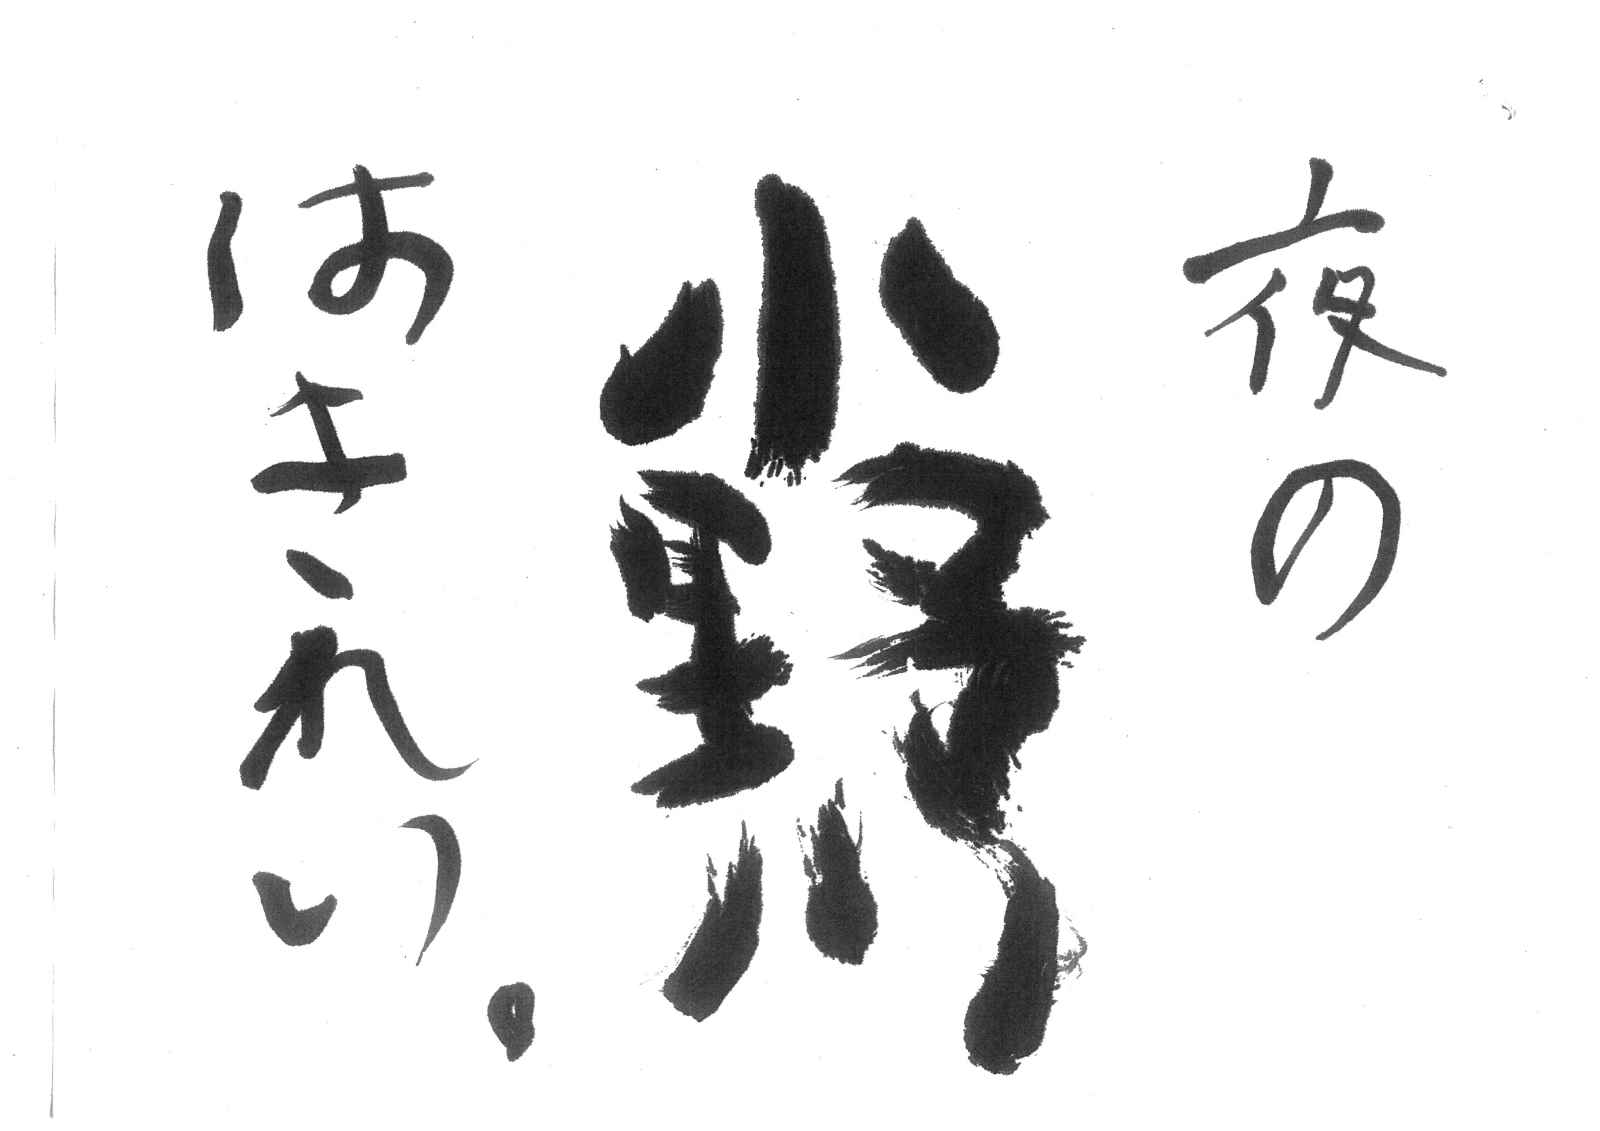 夜の
小野川
はきれい。